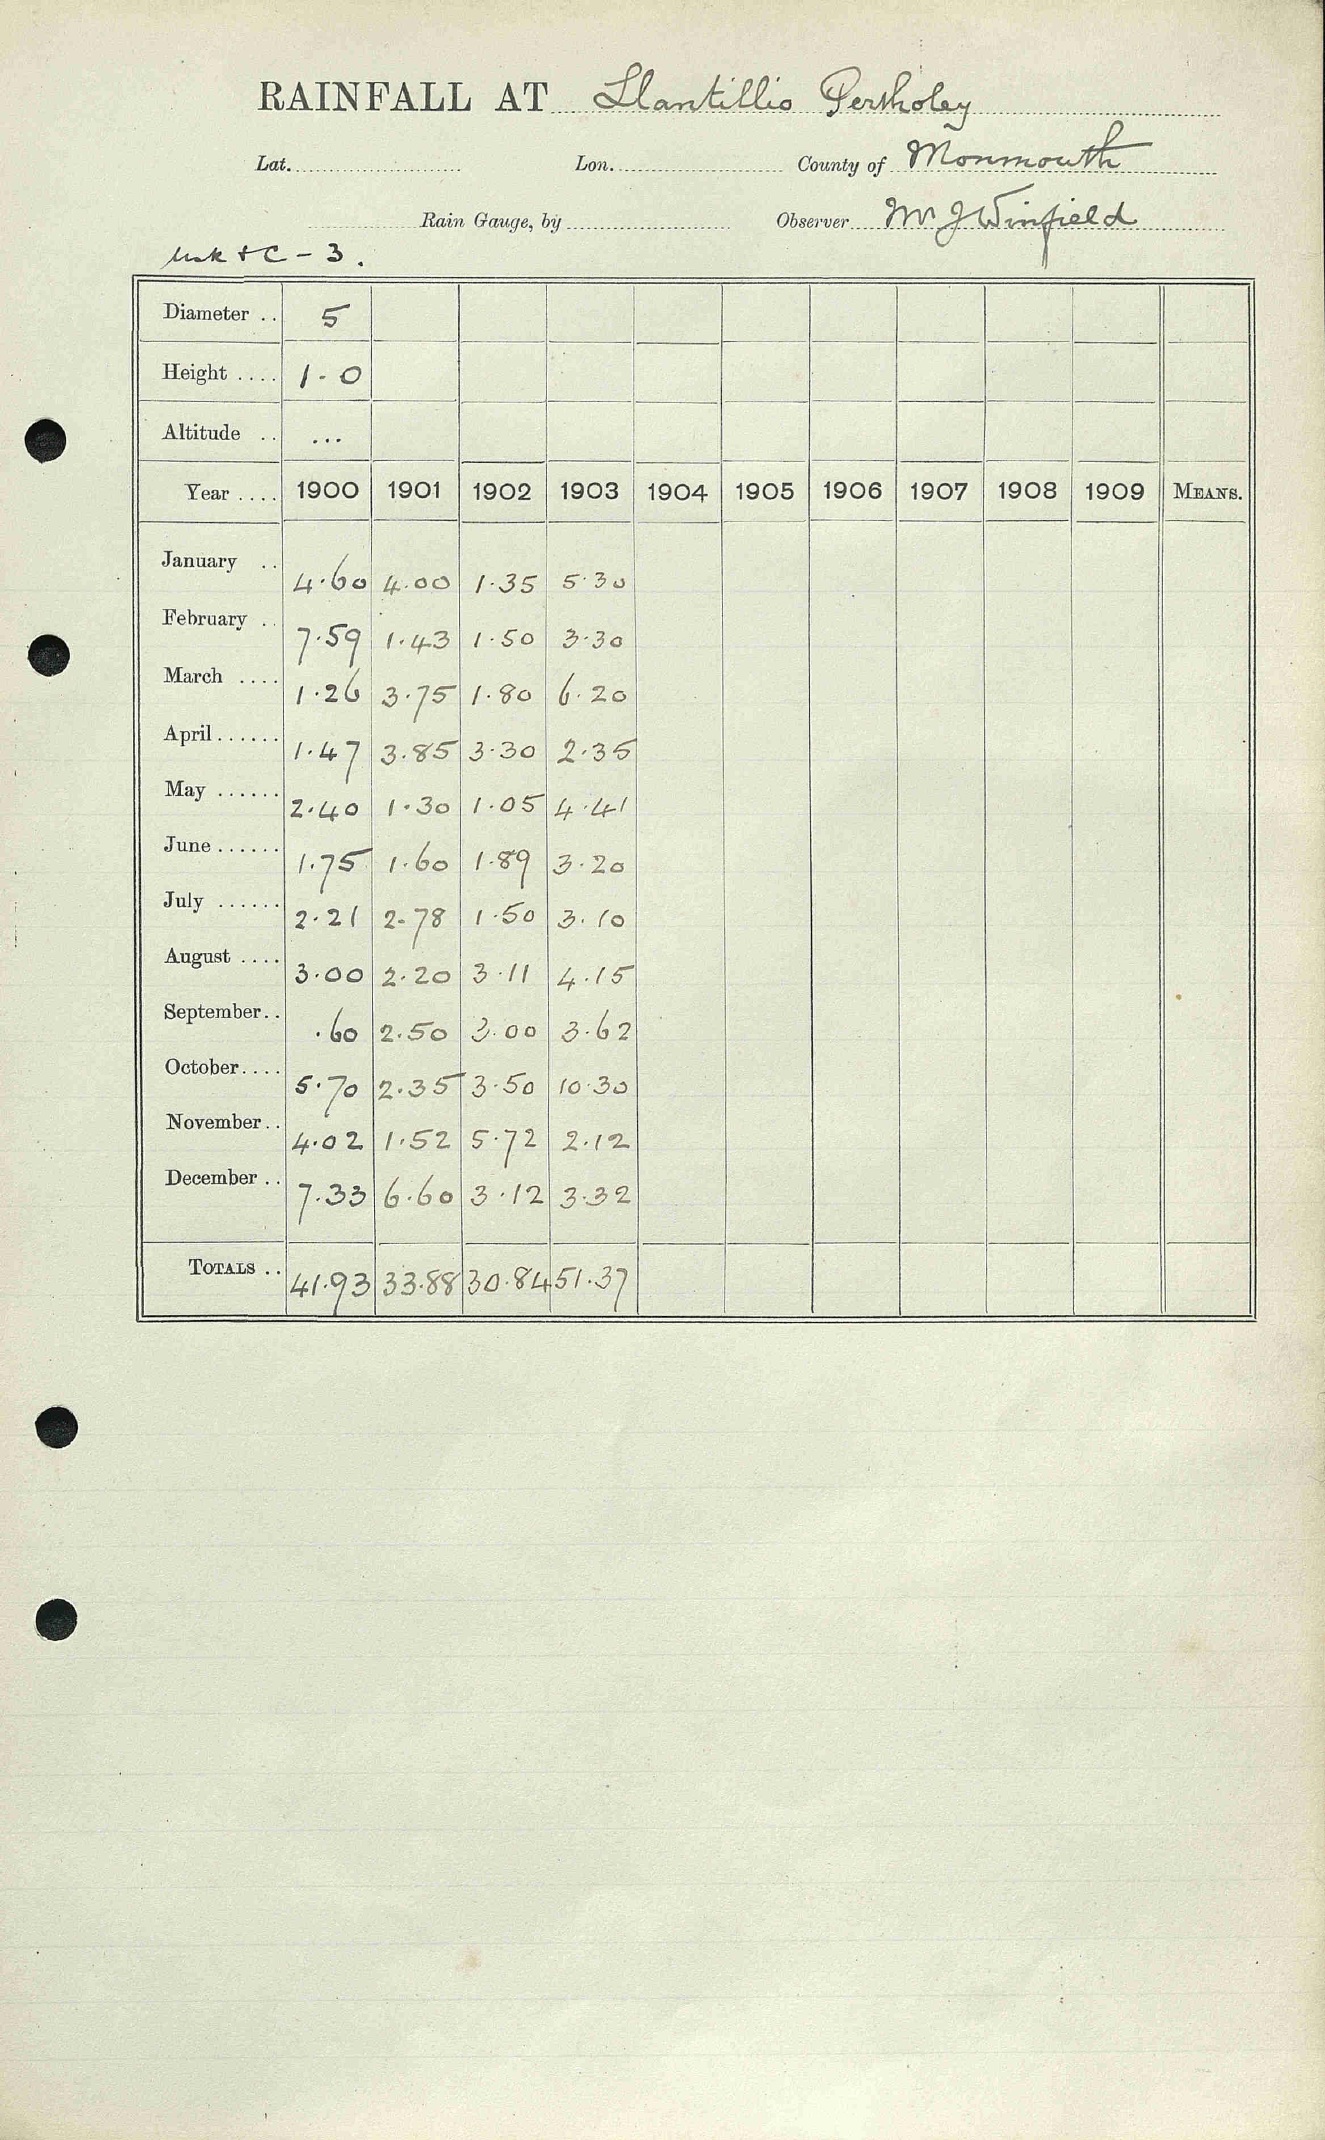 RAINFALL AT Llantillio Pertholey
Lat. Lon. County of Monmouth
Rain Gauge, by Observer Mr J Winfield
Usk & C - 3.
Diameter .. 5
Height .... 1-0
Altitude .. ...
Year .... 1900 1901 1902 1903 1904 1905 1906 1907 1908 1909 MEANS.
January .. 4.60 4.00 1.35 5.30
February .. 7.59 1.43 1.50 3.30
March .... 1.26 3.75 1.80 6.20
April ...... 1.47 3.85 3.30 2.35
May ...... 2.40 1.30 1.05 4.41
June ...... 1.75 1.60 1.89 3.20
July ...... 2.21 2.78 1.50 3.10
August .... 3.00 2.20 3.11 4.15
September.. .60 2.50 3.00 3.62
October.... 5.70 2.35 3.50 10.30
November.. 4.02 1.52 5.72 2.12
December .. 7.33 6.60 3.12 3.32
TOTALS .. 41.93 33.88 30.84 51.37